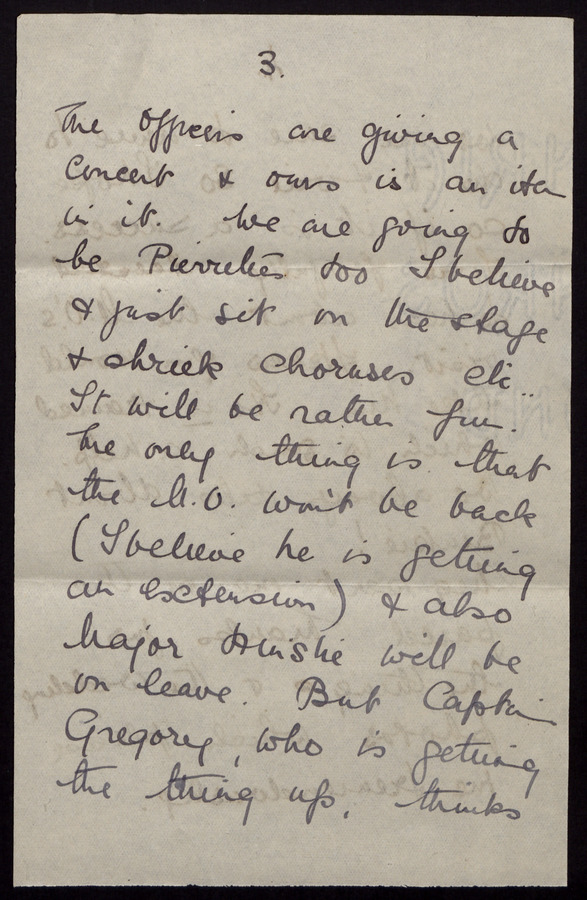 3.
The Officers are giving a
Concert & ours is an item
in it. We are going to
be Pierrettes too I believe
& just sit on the stage
& shriek choruses etc..
It will be rather fun.
The only thing is that
the M.O. won't be back
(I believe he is getting
an extension) & also
Major will be
on leave. But Captain
Gregory, who is getting
the thing up, thinks